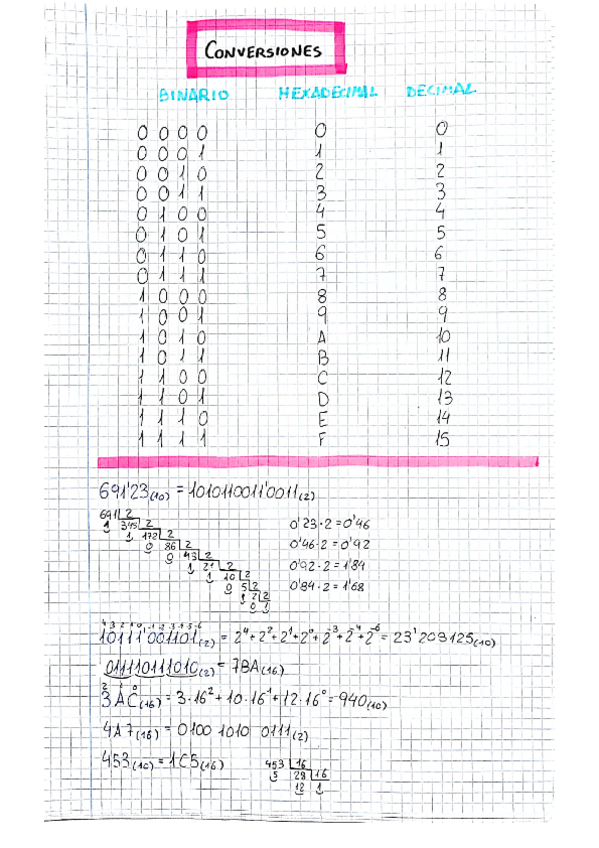 CONVERSIONES
BINARIO HEXADECIMAL DECIMAL
0 0 0 0 0 0
0 0 0 1 1 1
0 0 1 0 2 2
0 0 1 1 3 3
0 1 0 0 4 4
0 1 0 1 5 5
0 1 1 0 6 6
0 1 1 1 7 7
1 0 0 0 8 8
1 0 0 1 9 9
1 0 1 0 A 10
1 0 1 1 B 11
1 1 0 0 C 12
1 1 0 1 D 13
1 1 1 0 E 14
1 1 1 1 F 15
691'23(10) = 1010110011'0011(2)
691 2
1 345 2
1 172 2
0 86 2
0 43 2
1 21 2
1 10 2
0 5 2
1 2 2
0 1
0'23·2=0'46
0'46·2=0'92
0'92·2=1'84
0'84·2=1'68
4 3 2 1 0 -1 -2 -3 -4 -5 -6
10111'001101(2) = 2⁴+2²+2¹+2⁰+2⁻³+2⁻⁴+2⁻⁶ = 23'203125(10)
011110111010(2) = 7BA(16)
2 1 0
3AC(16) = 3·16²+10·16¹+12·16⁰ = 940(10)
4A7(16) = 0100 1010 0111(2)
453(10) = 1C5(16)
453 16
5 28 16
12 1